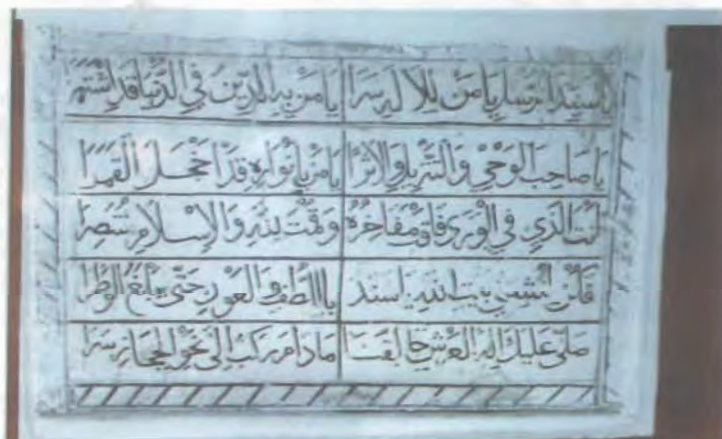 يا سيد الرسل يا من للإله سرا يا من به الدين في الدنيا قد اشتهرا
يا صاحب الوحي والتنزيل والاثرا يا من بانواره قد اخجل القمرا
انت الذي في الورى فاقت مفاخره وقمت لله والإسلام منتصرا
باللطف والعون حتى يبلغ الوطرا
صلى عليك اله العرش خالقنا ما دام ركب الى نحو الحجاز سرا